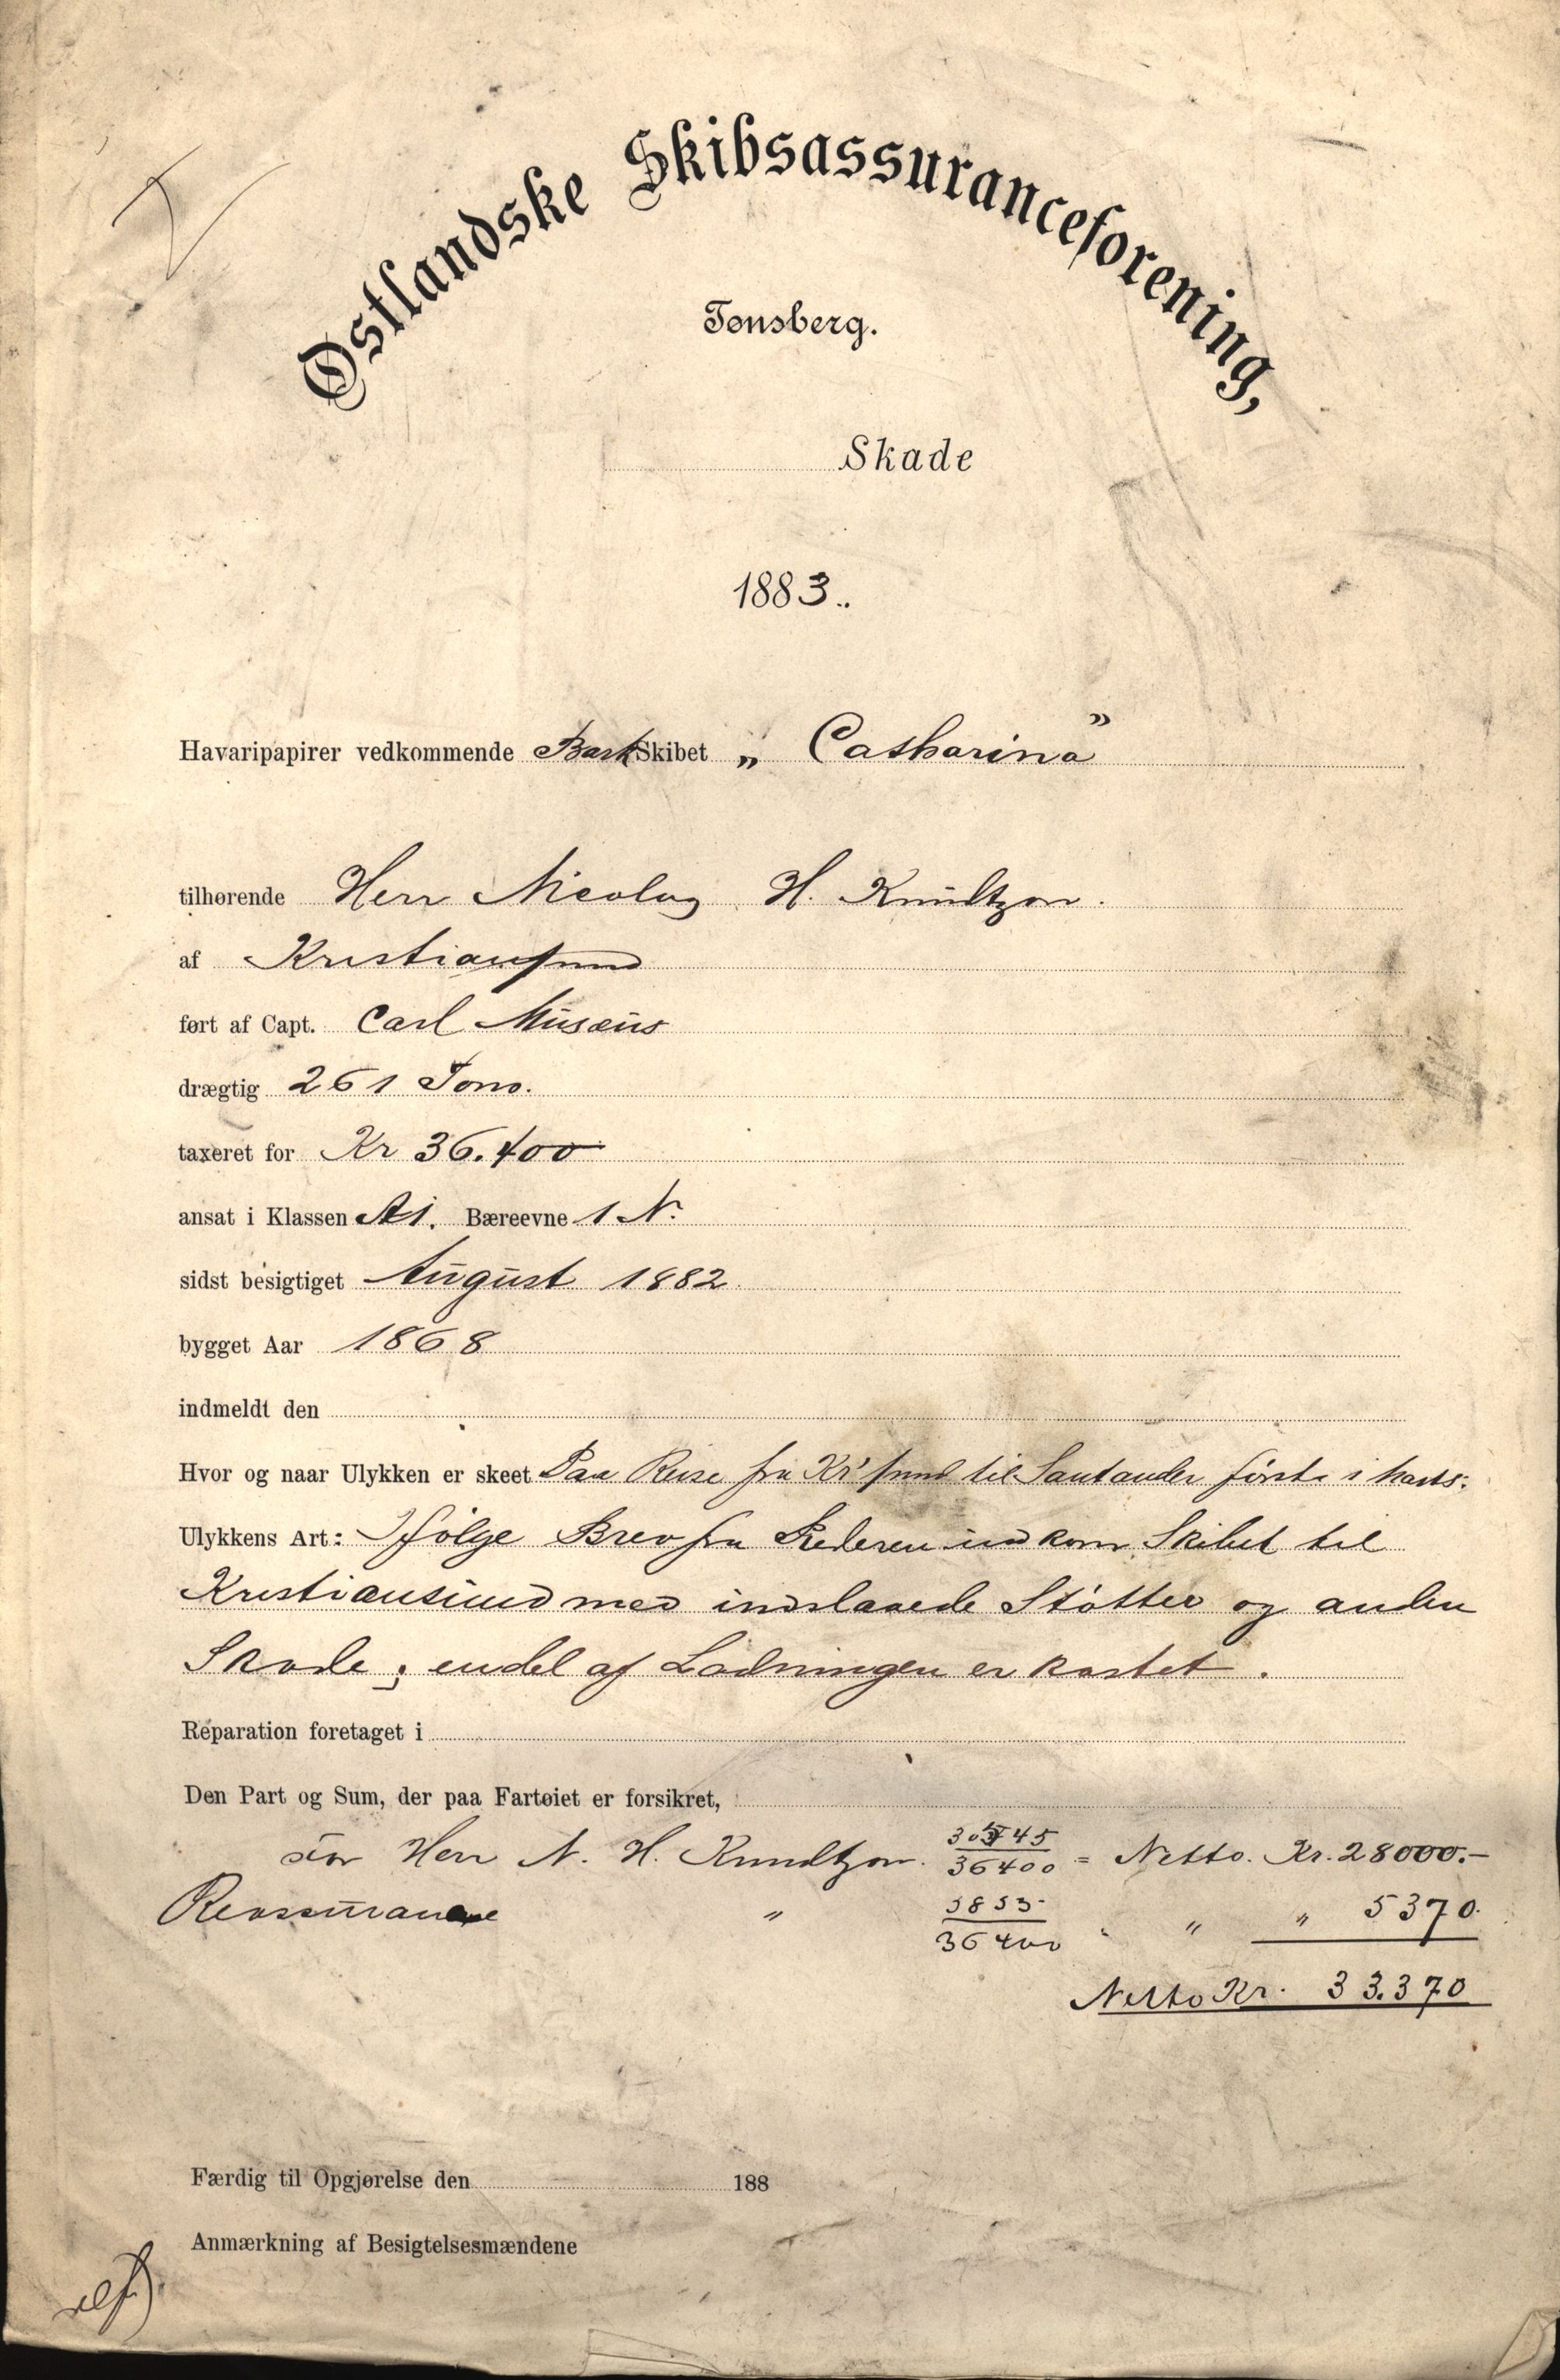 Østlandske Skibsassuranceforening,
Tønsberg.
Skade
1883.
Havaripapirer vedkommende BarkSkibet „ Catharina"
tilhørende Herr Nicolay H. Knudtzon.
af Kristianssund
ført af Capt. Carl Musæus
drægtig 261 Tons.
taxeret for Kr 36.400
ansat i Klassen A1. Bæreevne 1 N.
sidst besigtiget August 1882
bygget Aar 1868
indmeldt den
Hvor og naar Ulykken er skeet Paa Reise fra Kr'sund til Santander først i Marts.
Ulykkens Art: Ifølge Brev fra Rederen indkom Skibet til
Kristiansund med indslaaede Støtter og anden
Skade; endel af Ladningen er kastet.
Reparation foretaget i
Den Part og Sum, der paa Fartøiet er forsikret,
for Herr N. H. Knudtzon. 30545/36400 = Netto. Kr. 28000.-
Reassurance " 5853/36400 " " 5370.
Netto Kr. 33.370
Færdig til Opgjørelse den 188
Anmærkning af Besigtelsesmændene